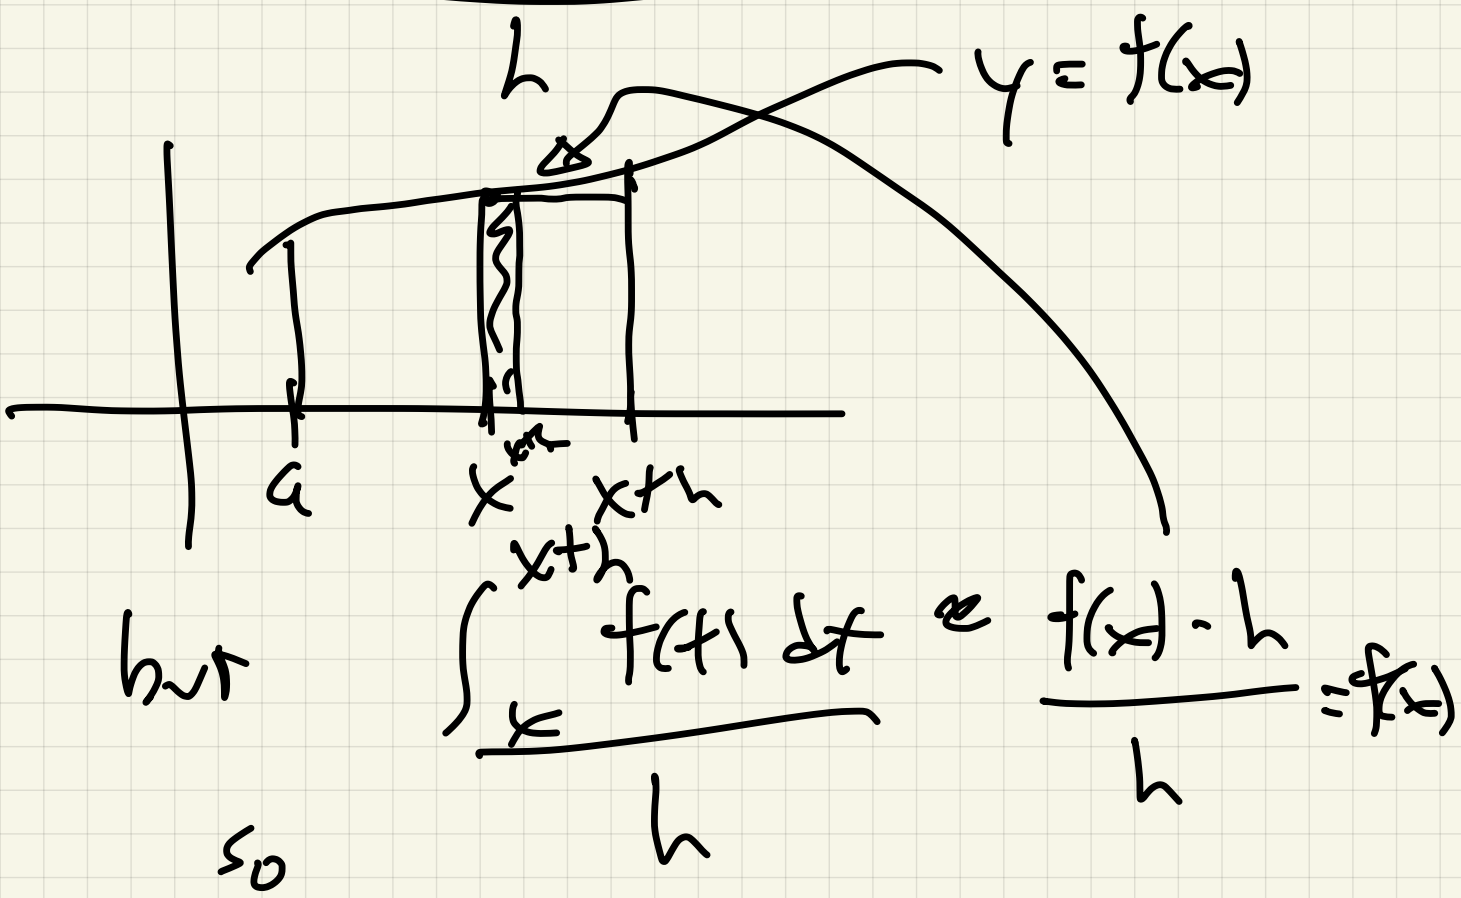 h
y = f(x)
a
x
x+h
but
∫ₓˣ⁺ʰ f(t) dt / h ≈ f(x) · h / h = f(x)
so